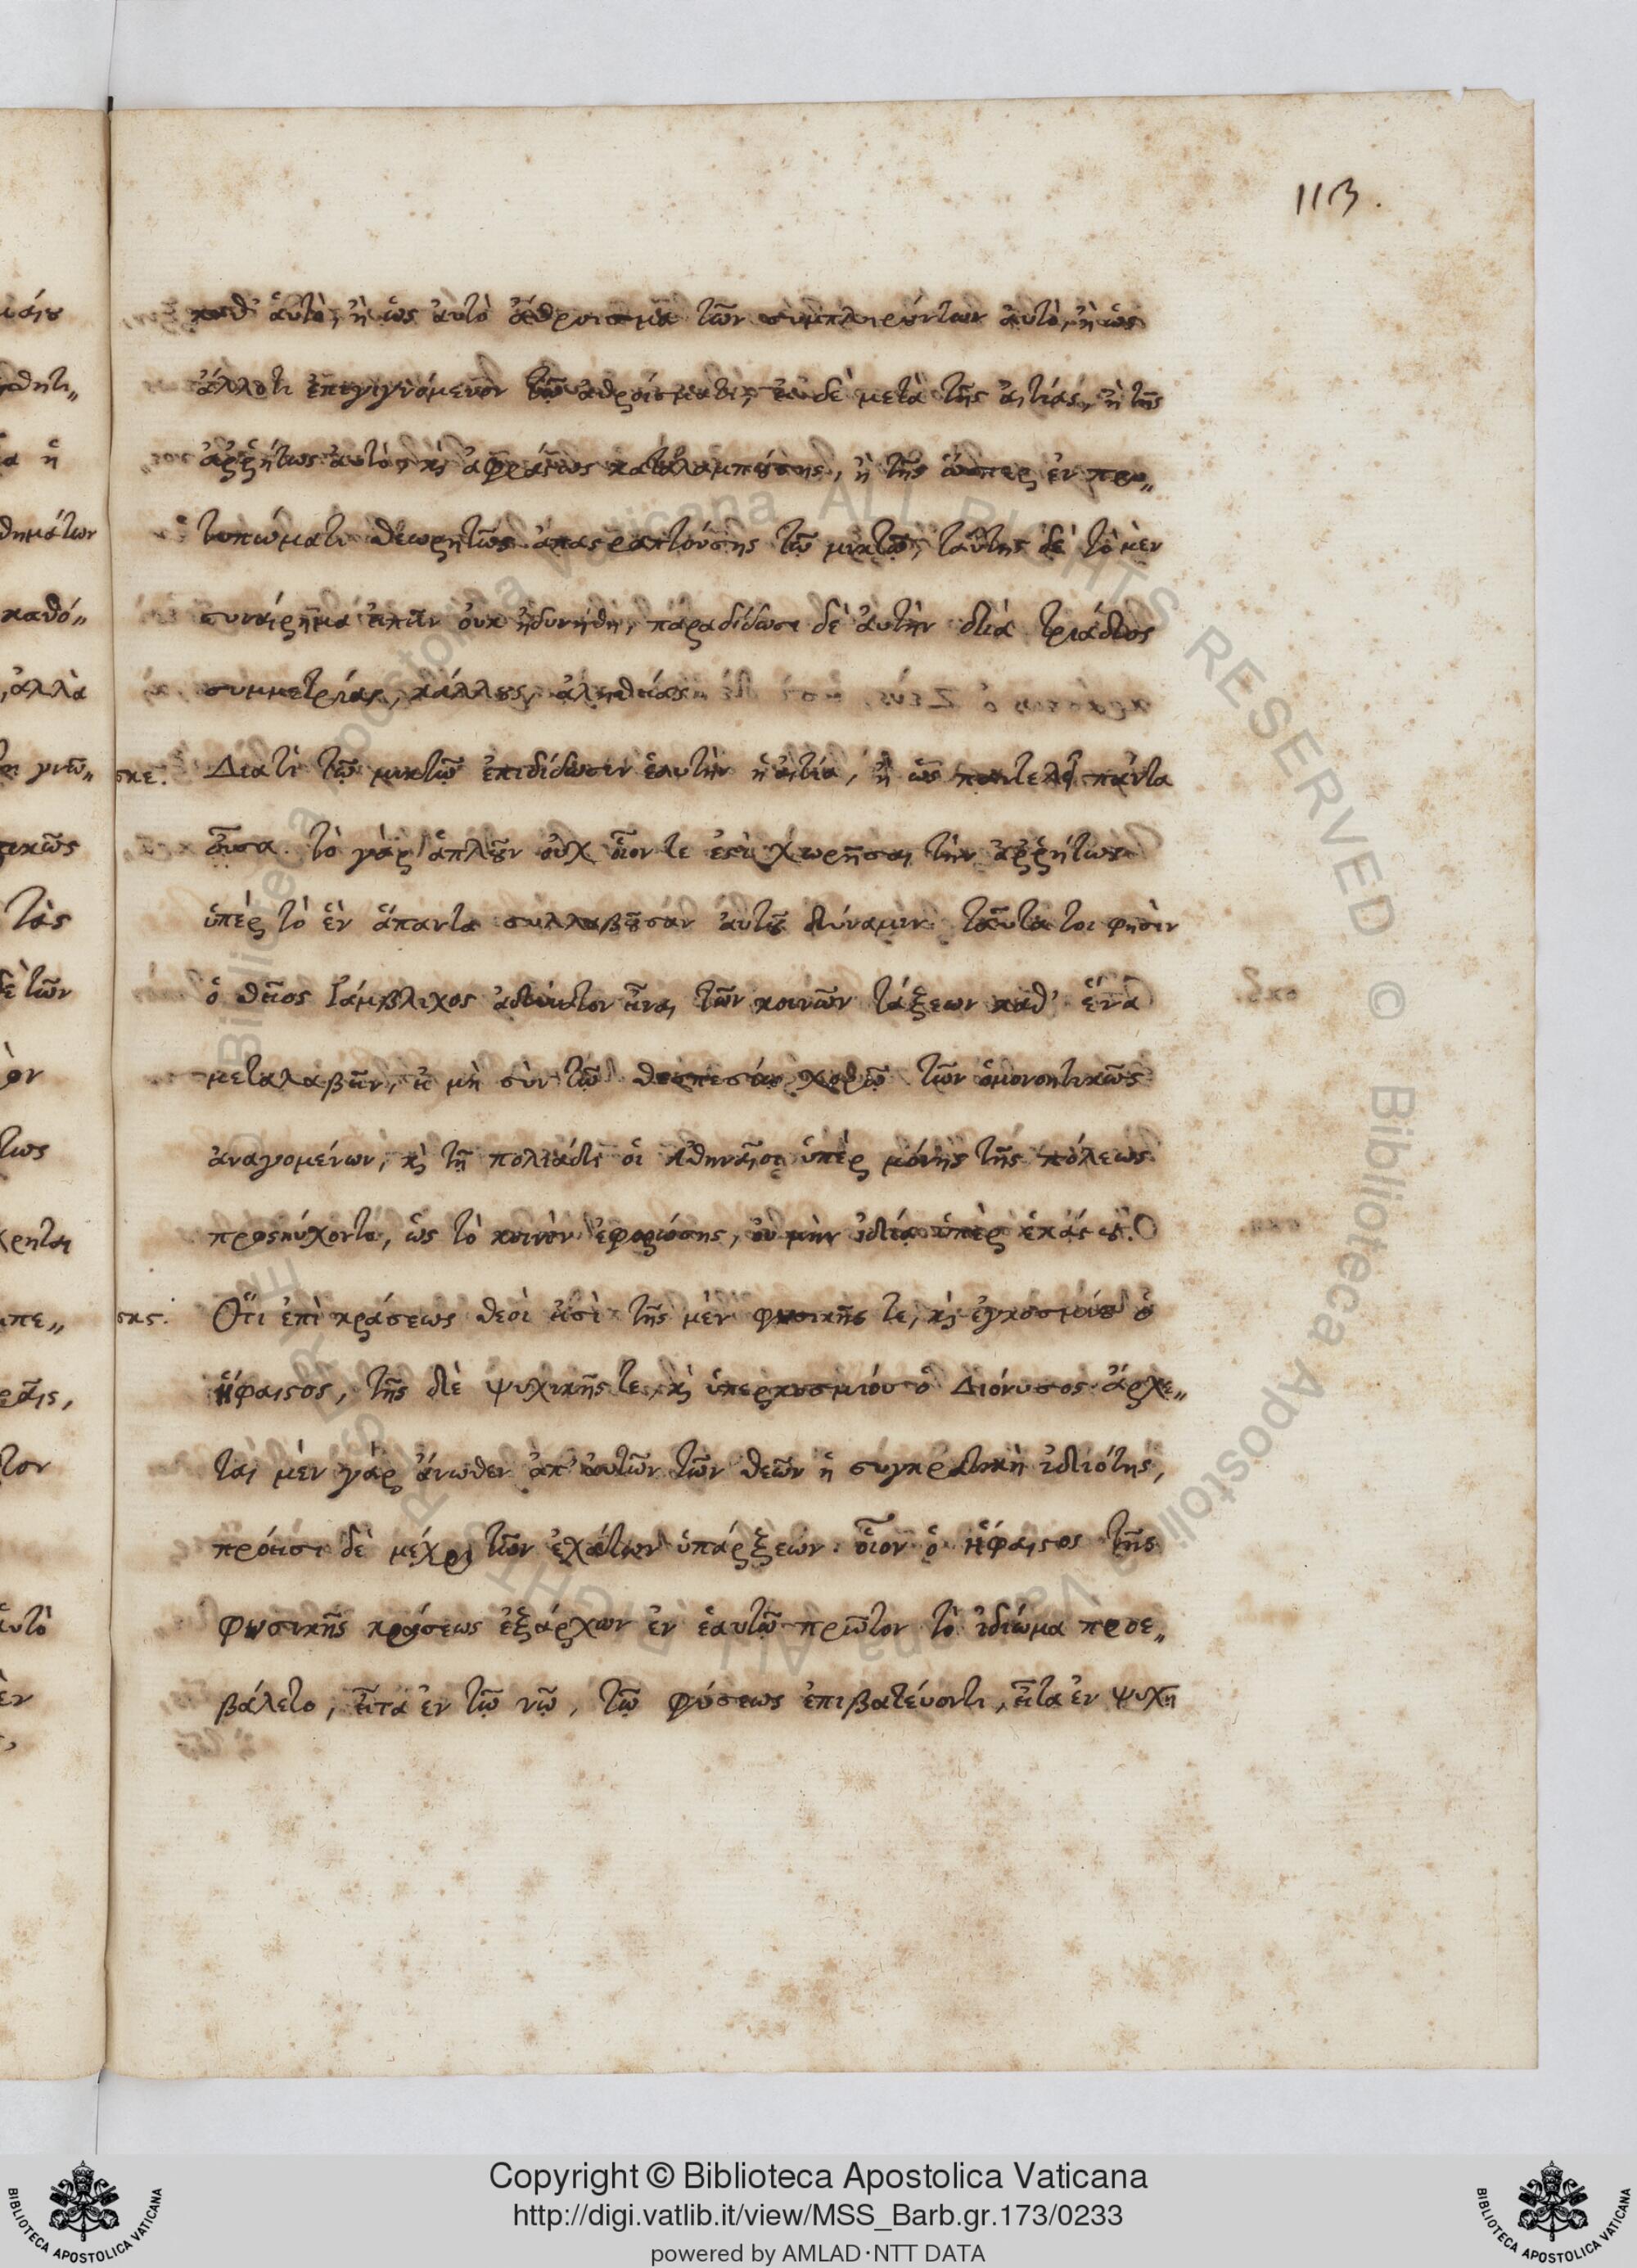 113.
καθ' ἁυτὸ, ἢ ὡς ἀυτὸ ἄθροισμα τῶν συμπληρούντων ἀυτὸ, ἢ ὡς
ἄλλο τι ἐπιγιγνόμενον τῷ ἀθροίσματι, ἐυδὲ μετὰ τῆς ἀιτίας, ἢ τῆς
ἀῤῥήτως ἀυτὸ, κỳ ἀφράστως καταλαμπούσης, ἢ τῆς ὥσπερ ἐν προ„
τυπώματι θεωρητῶς ἀπαστραπτούσης τῷ μικτῷ, ταύτης δὲ τὸ μὲν
συναίρημα ἐιπεῖν ὀυκ ἠδυνήθη, παραδίδωσι δὲ ἀυτὴν διὰ τριάδος
συμμετρίας, κάλλους, ἀληθείας
σκε. Διατὶ τῷ μικτῷ ἐπιδίδωσιν ἑαυτὴν ἡ ἀιτία, ἢ ὡς παντελῆ πάντα
ὀῦσα. τὸ γὰρ ἁπλοῦν ὀυχ ὁῖον τε ἐστὶ χωρῆσαι τὴν ἀῤῥήτως
ὑπὲρ τὸ ἓν ἅπαντα συλλαβοῦσαν ἀυτοῦ δύναμιν. ταῦτα τοι φησὶν
ὁ θεῖος Ἰάμβλιχος ἀδύνατον εἶναι τῶν κοινῶν τάξεων καθ' ἕνα
μεταλαβεῖν, ἐι μὴ σὺν τῷ θεσπεσίῳ χορῷ τῶν ὁμονοητικῶς
ἀναγομένων, κỳ τῇ πολιάδι ὁι Ἀθηναῖοι ὑπὲρ μόνης τῆς πόλεως
προσηύχοντο, ὡς τὸ κοινὸν ἐφορώσης, ὀυ μὴν ἰδίᾳ ὑπὲρ ἑκάστου.
σκς. Ὅτι ἐπὶ κράσεως θεοὶ ἐισὶ τῆς μὲν φυσικῆς τε, κỳ ἐγκοσμίου ὁ
ἥφαιστος, τῆς δὲ ψυχικῆς τε, κỳ ὑπερκοσμιόυ ὁ Διόνυσος. ἄρχε„
ται μὲν γὰρ ἄνωθεν ἀπ' ἀυτῶν τῶν θεῶν ἡ συγκρατικὴ ἰδιότης,
πρόεισι δὲ μέχρι τῶν ἐσχάτων ὑπάρξεων. ὁῖον ὁ ἥφαιστος τῆς
φυσικῆς κράσεως ἐξάρχων ἐν ἑαυτῷ πρῶτον τὸ ἰδίωμα προε„
βάλετο, ἐῖτα ἐν τῷ νῷ, τῷ φύσεως ἐπιβατέυοντι, ἐῖτα ἐν ψυχῇ
Copyright © Biblioteca Apostolica Vaticana
http://digi.vatlib.it/view/MSS_Barb.gr.173/0233
powered by AMLAD·NTT DATA